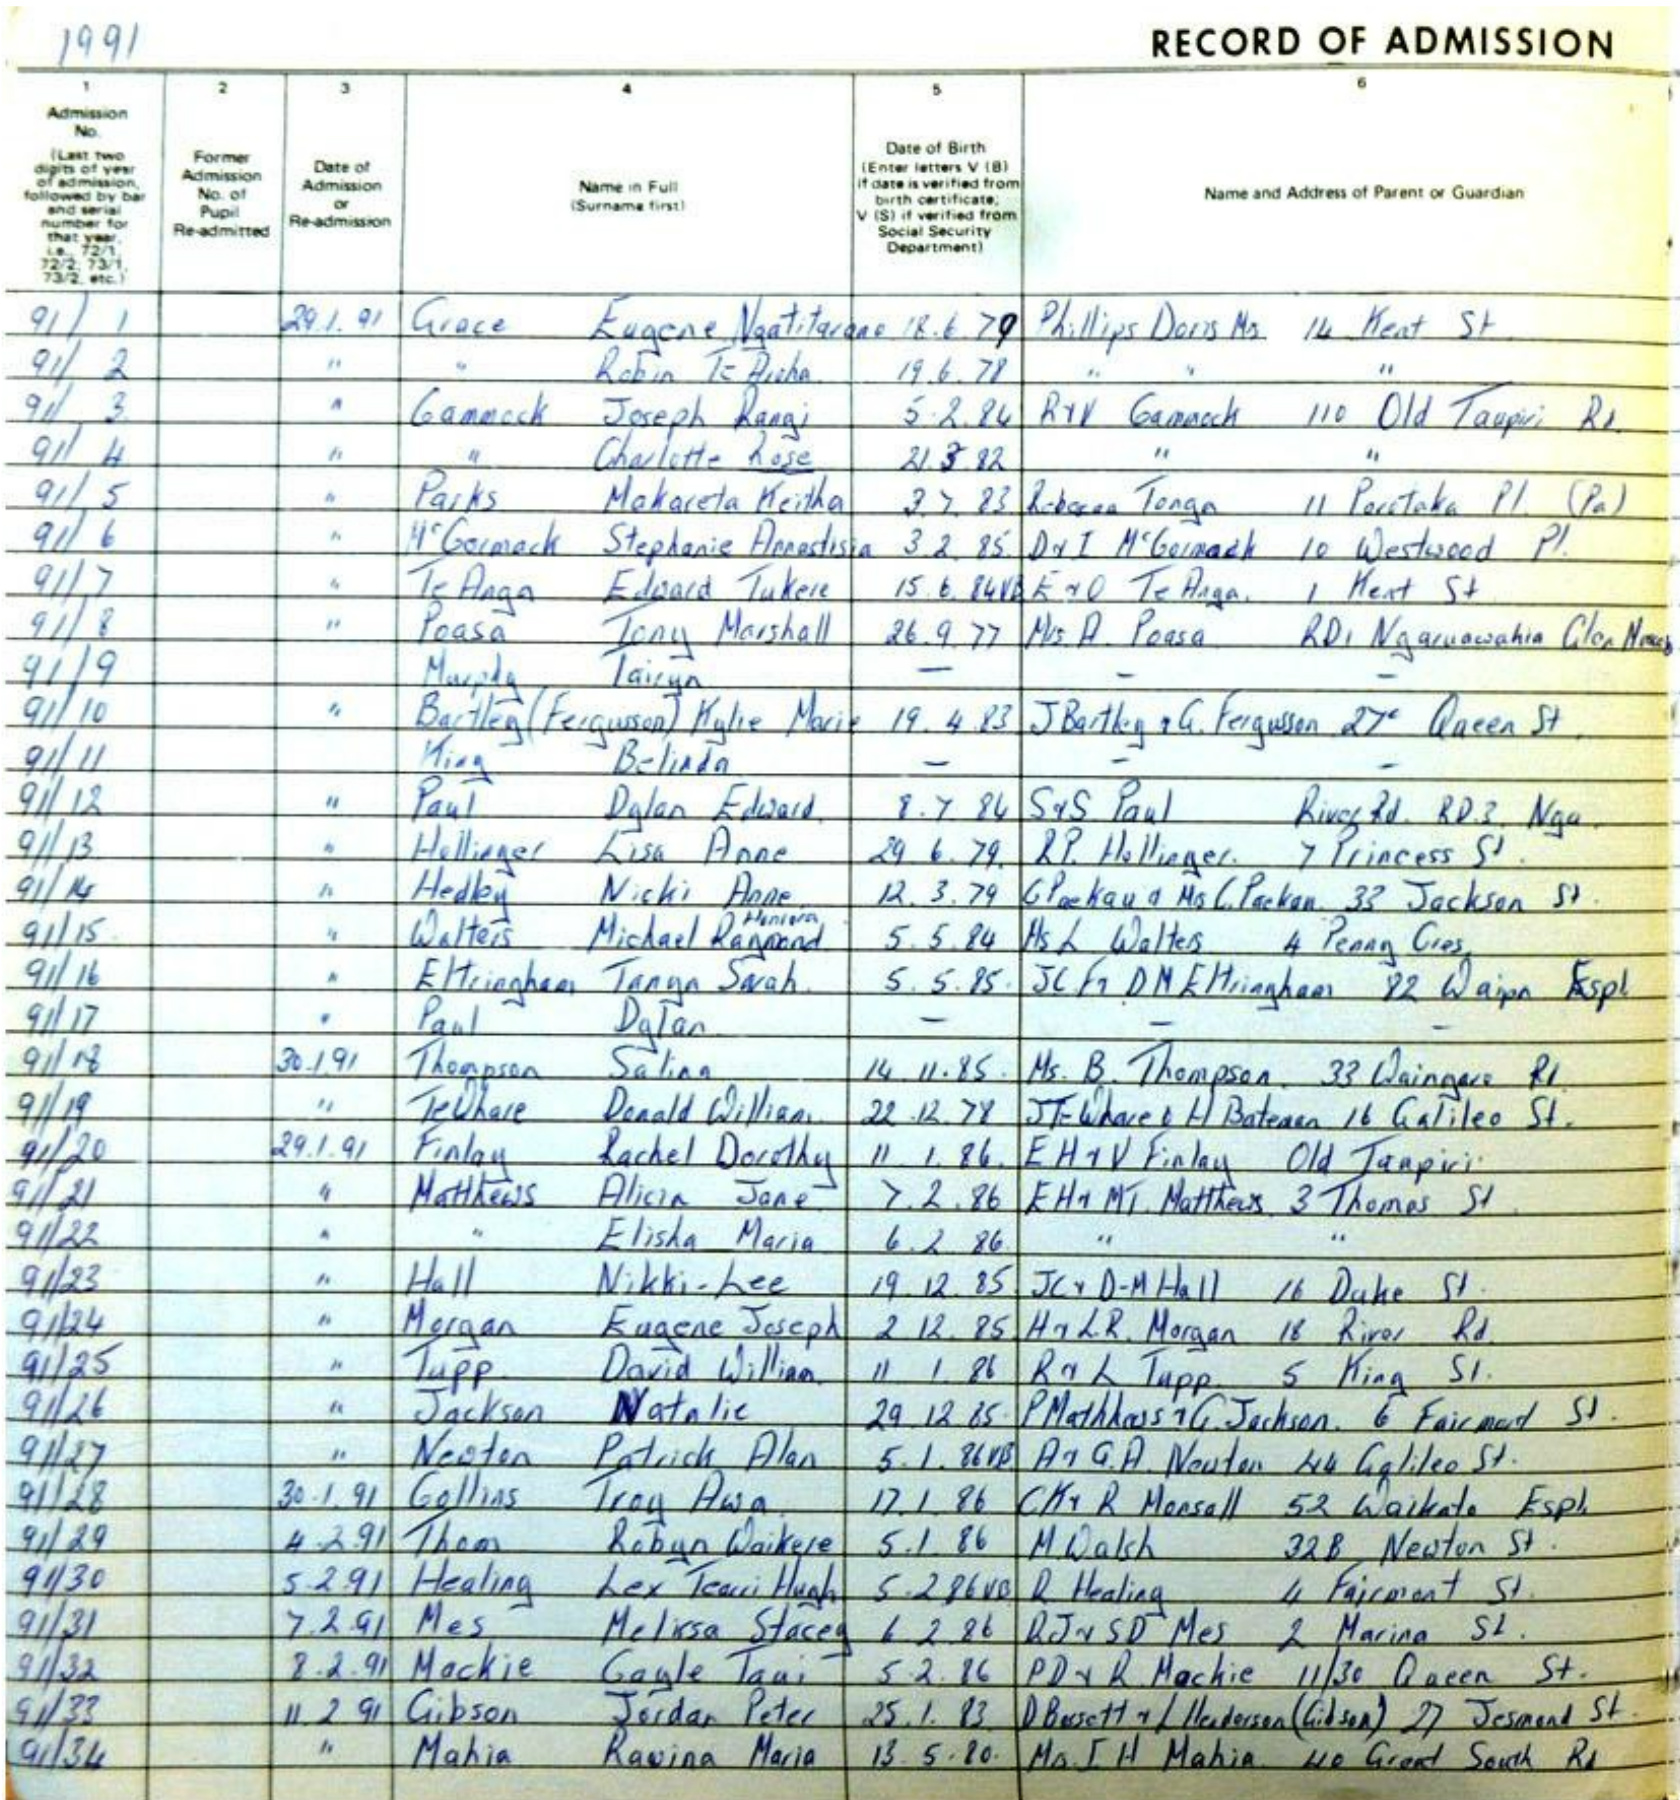 1991
RECORD OF ADMISSION
1 2 3 4 5 6
Admission No. (Last two digits of year of admission, followed by bar and serial number for that year, i.e., 72/1, 72/2, 73/1, 73/2, etc.)
Former Admission No. of Pupil Re-admitted
Date of Admission or Re-admission
Name in Full (Surname first)
Date of Birth (Enter letters V (B) if date is verified from birth certificate; V (S) if verified from Social Security Department)
Name and Address of Parent or Guardian
91/ 1 29.1.91 Grace Eugene 18.6.79 Phillips Doris Ms 14 Kent St
91/ 2 " " Robin Te Aroha 19.6.78 " " "
91/ 3 " Gammock Joseph Rangi 5.2.84 R&V Gammock 110 Old Taupiri Rd.
91/ 4 " " Charlotte Rose 21. 82 " "
91/ 5 " Parks Makareta Keitha 3.7.83 Rebecca Tonga 11 Pl. (Pa)
91/ 6 " McGormack Stephanie 3.2.85. D&I McGormack 10 Westwood Pl.
91/7 " Te Anga Edward Tukere 15.6.84VB E&O Te Anga. 1 Kent St
91/8 " Poasa Tony Marshall 26.9.77 Mrs A. Poasa RD1 Ngaruawahia Glen
91/9 Murphy – – –
91/10 " Bartley (Fergusson) Kylie Marie 19.4.83 J Bartley & G. Fergusson 27 Queen St.
91/11 King Belinda – – –
91/12 " Paul Dylan Edward 8.7.84 S&S Paul River Rd. RD.3. Nga.
91/13 " Hollinger Lisa Anne 29.6.79. R.P. Hollinger. 7 Princess St.
91/14 " Hedley Nicki Anne 12.3.79 & Ms C. 33 Jackson St.
91/15 " Walters Michael Raymond 5.5.84 Ms L Walters 4 Penny Cres.
91/16 " Eltringham Tanya Sarah 5.5.85. JC F& DM Eltringham 82 Waipa Espl
91/17 " Paul Dylan – – –
91/18 30.1.91 Thompson Salina 14.11.85. Ms. B. Thompson. 33 Waingaro Rd.
91/19 " TeWhare Donald William. 22.12.78 J TeWhare & H Bateman 16 Galileo St.
91/20 29.1.91 Finlay Rachel Dorothy 11.1.86. EH&V Finlay Old Taupiri
91/21 " Matthews Alicia Jane 7.2.86 EH& MT. Matthews 3 Thomas St
91/22 " " Elisha Maria 6.2.86 " "
91/23 " Hall Nikki-Lee 19.12.85 JC& D-M Hall 16 Duke St.
91/24 " Morgan Eugene Joseph 2.12.85 H& L.R. Morgan 18 River Rd
91/25 " Tupp David William 11 1.86 R& L Tupp 5 King St.
91/26 " Jackson Natalie 29.12.85. P Matthews & G. Jackson. 6 Fairmont St.
91/27 " Newton Patrick Alan 5.1.86VB A& G.A. Newton 44 Galileo St.
91/28 30.1.91 Gollins Troy Awa 17.1.86 CK& R Monsall 52 Waikato Espl.
91/29 4.2.91 Thom Robyn Waikere 5.1.86 M Walsh 32B Newton St.
91/30 5.2.91 Healing Lex Hugh 5.2.86VB R Healing 4 Fairmont St.
91/31 7.2.91 Mes Melissa Stacey 6.2.86 RJ& SD Mes 2 Marina St.
91/32 8.2.91 Mackie Gayle Taui 5.2.86 PD& R Mackie 11/30 Queen St.
91/33 11.2.91 Gibson Jordan Peter 25.1.83. D Bassett & L Henderson (Gibson) 27 Jesmond St.
91/34 " Mahia Rawina Maria 13.5.80. Ms. I H Mahia 40 Great South Rd